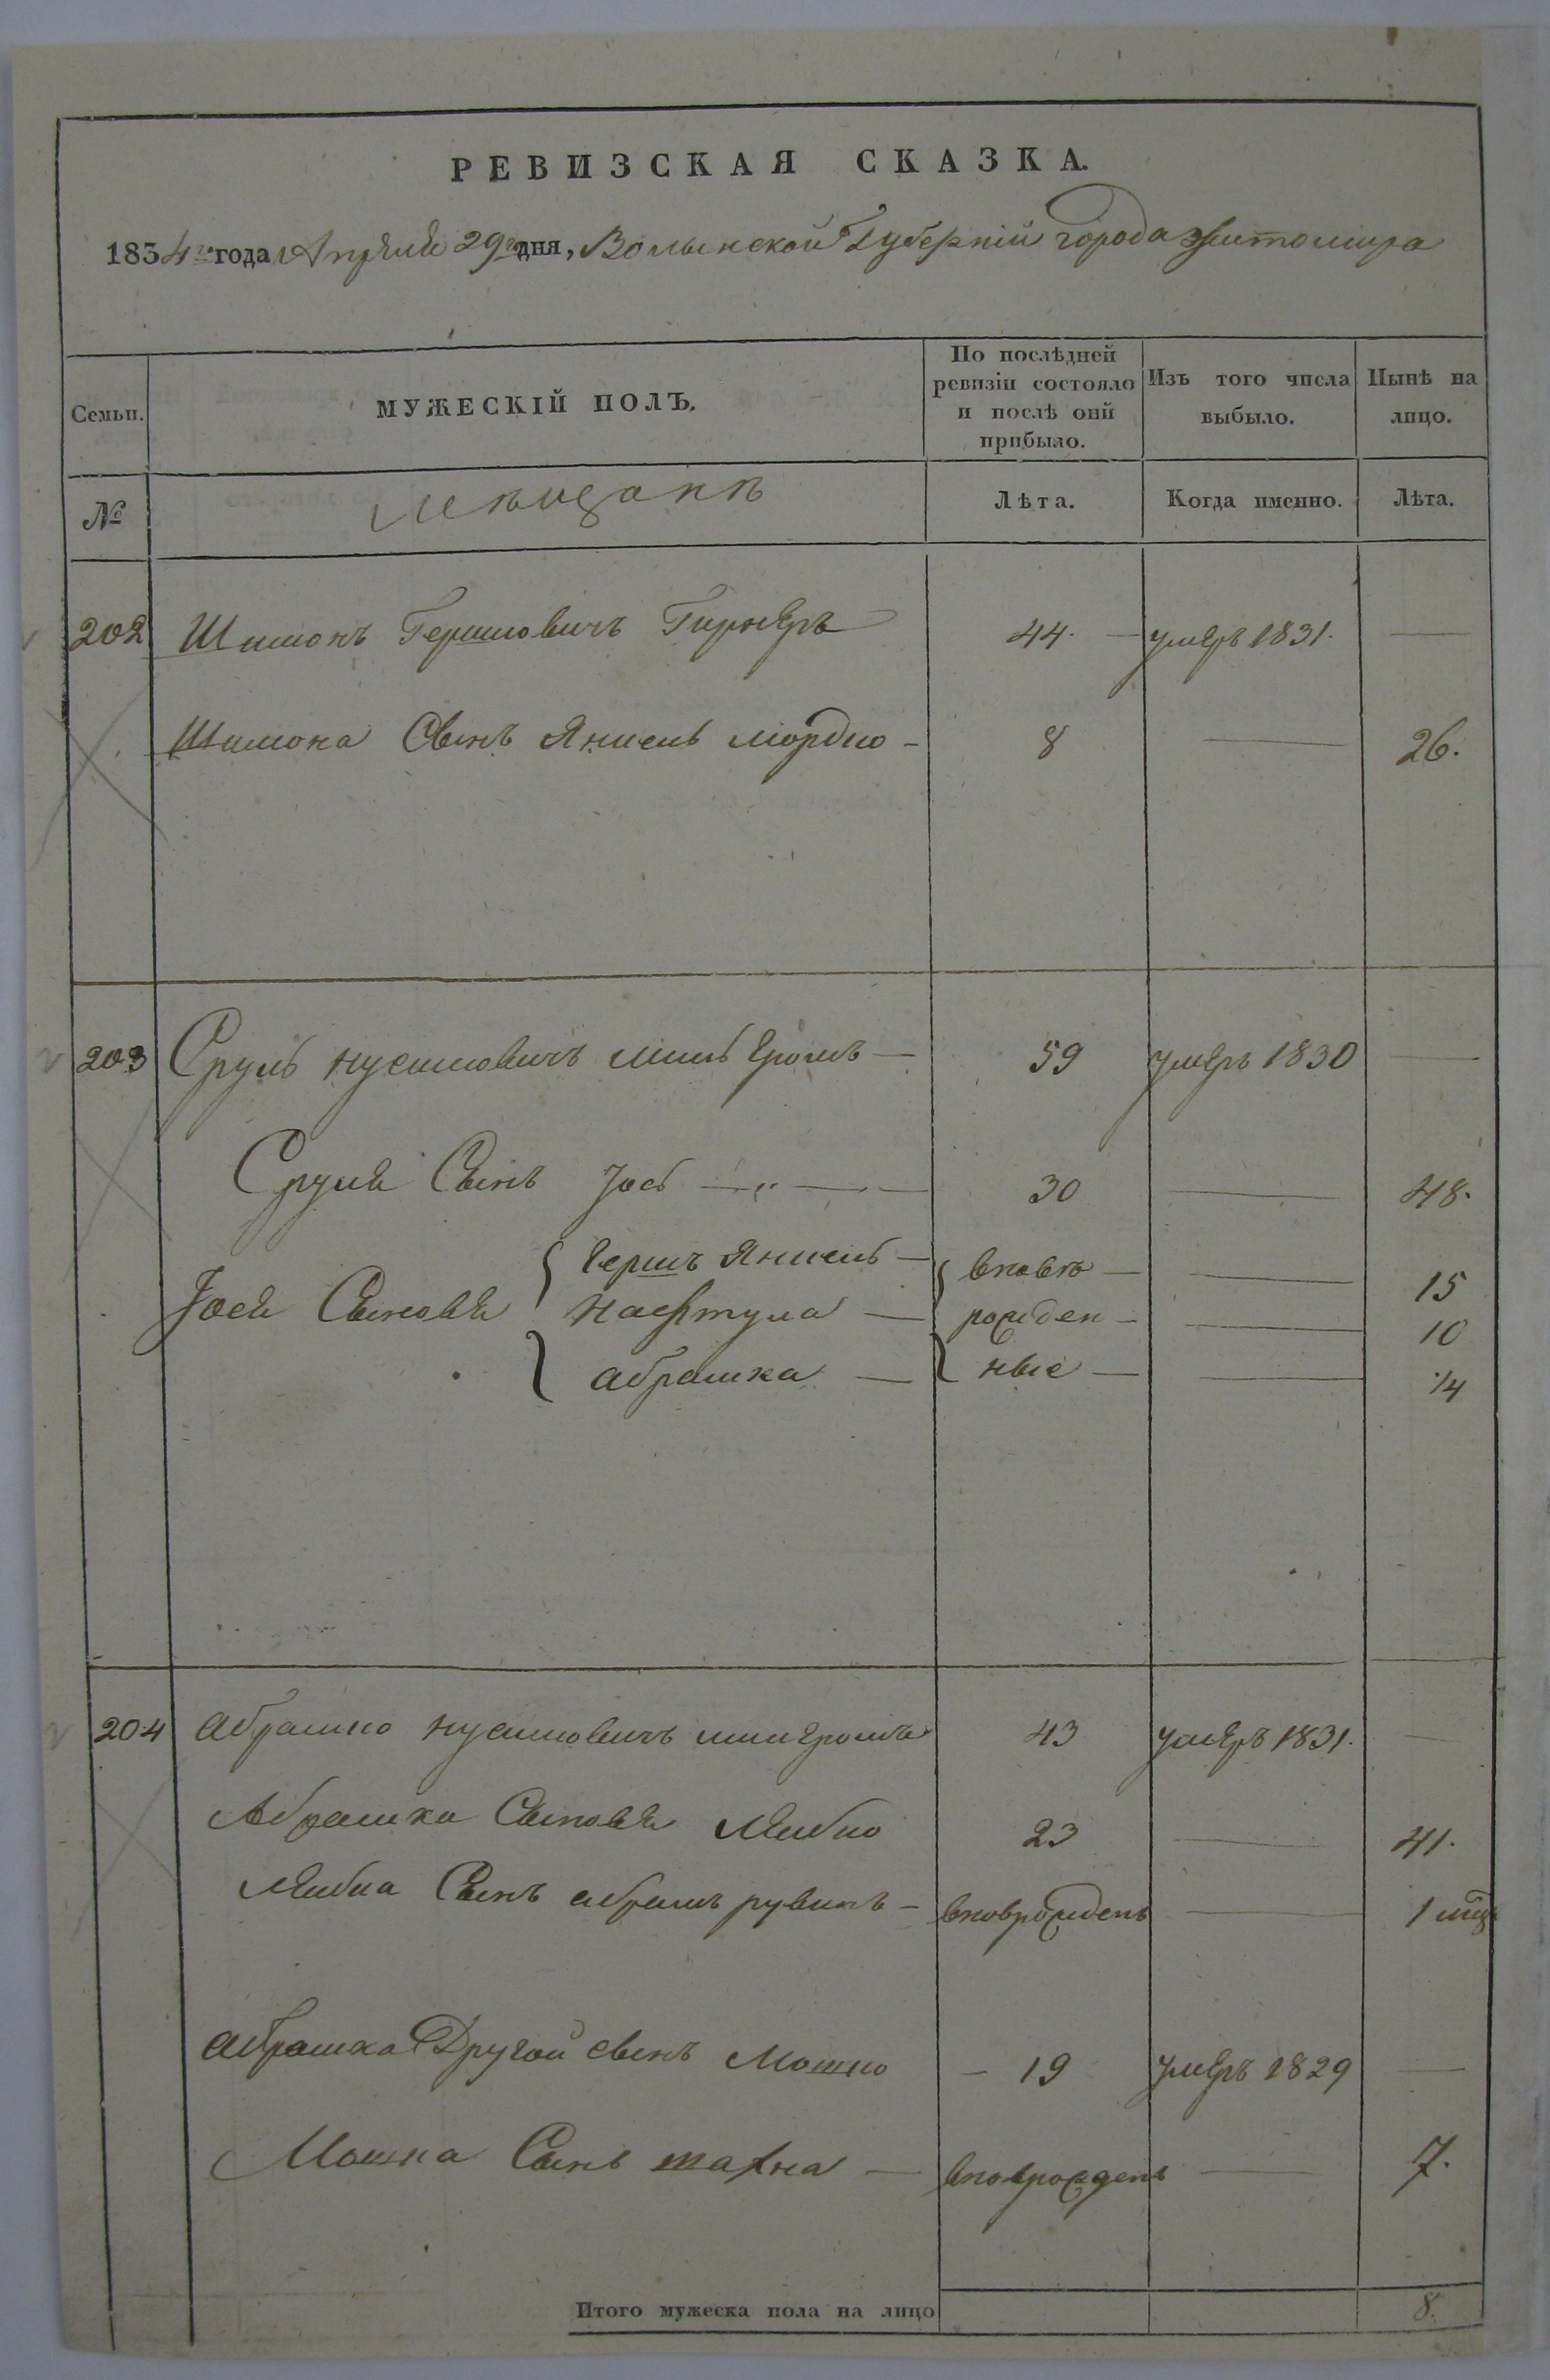 РЕВИЗСКАЯ СКАЗКА.
1834го года Апреля 29го дня, Волынской Губерніи города Житомира
Семьи.
МУЖЕСКІЙ ПОЛЪ.
По послѣдней ревизіи состояло и послѣ оной прибыло.
Изъ того числа выбыло.
Нынѣ на лицо.
№
Мещанъ
Лѣта.
Когда именно.
Лѣта.
202 Шимонъ Гершковичъ 44. умеръ 1831. —
Шимона Сынъ Янкель Мордко - 8 — 26.
203 Сруль Нусимовичъ — 59 умеръ 1830 —
Сруля Сынъ Іось — 30 — 48.
Гершъ Янкель — вновь — — 15
Іося Сыновья Нафтула — рожден - — 10
абрамка — ные — — 14
204 абрамко Нусимовичъ 43 умеръ 1831. —
Абрамка Сыновья Лейбко 23 — 41.
Лейбка Сынъ абрамъ рувинъ - вноврожденъ — 1 мц
абрамка Другой сынъ Мошко - 19 умеръ 1829 —
Мошка Сынъ шахна — вноврожденъ — 7.
Итого мужеска пола на лицо 8.